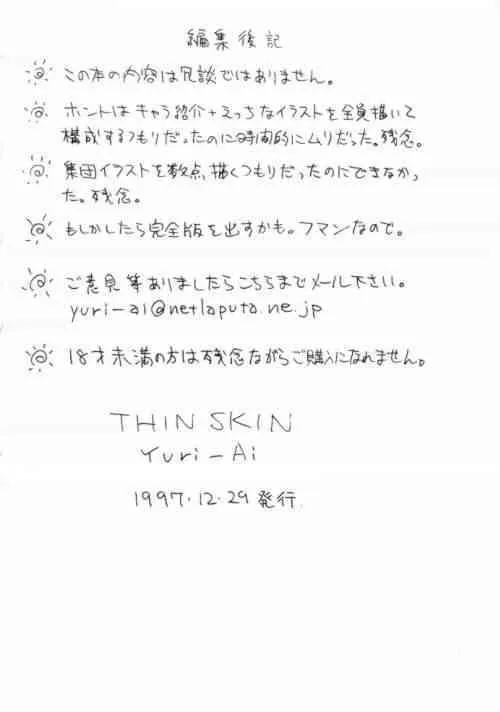 編集後記
この本の内容は冗談ではありません。
ホントはキャラ紹介+えっちなイラストを全員描いて
構成するつもりだったのに時間的にムリだった。残念。
集団イラストを数点、描くつもりだったのにできなかっ
た。残念。
もしかしたら完全版を出すかも。フマンなので。
ご意見等ありましたらこちらまでメール下さい。
yuri-ai@netlaputa.ne.jp
18才未満の方は残念ながらご購入になれません。
THIN SKIN
Yuri-Ai
1997.12.29 発行.